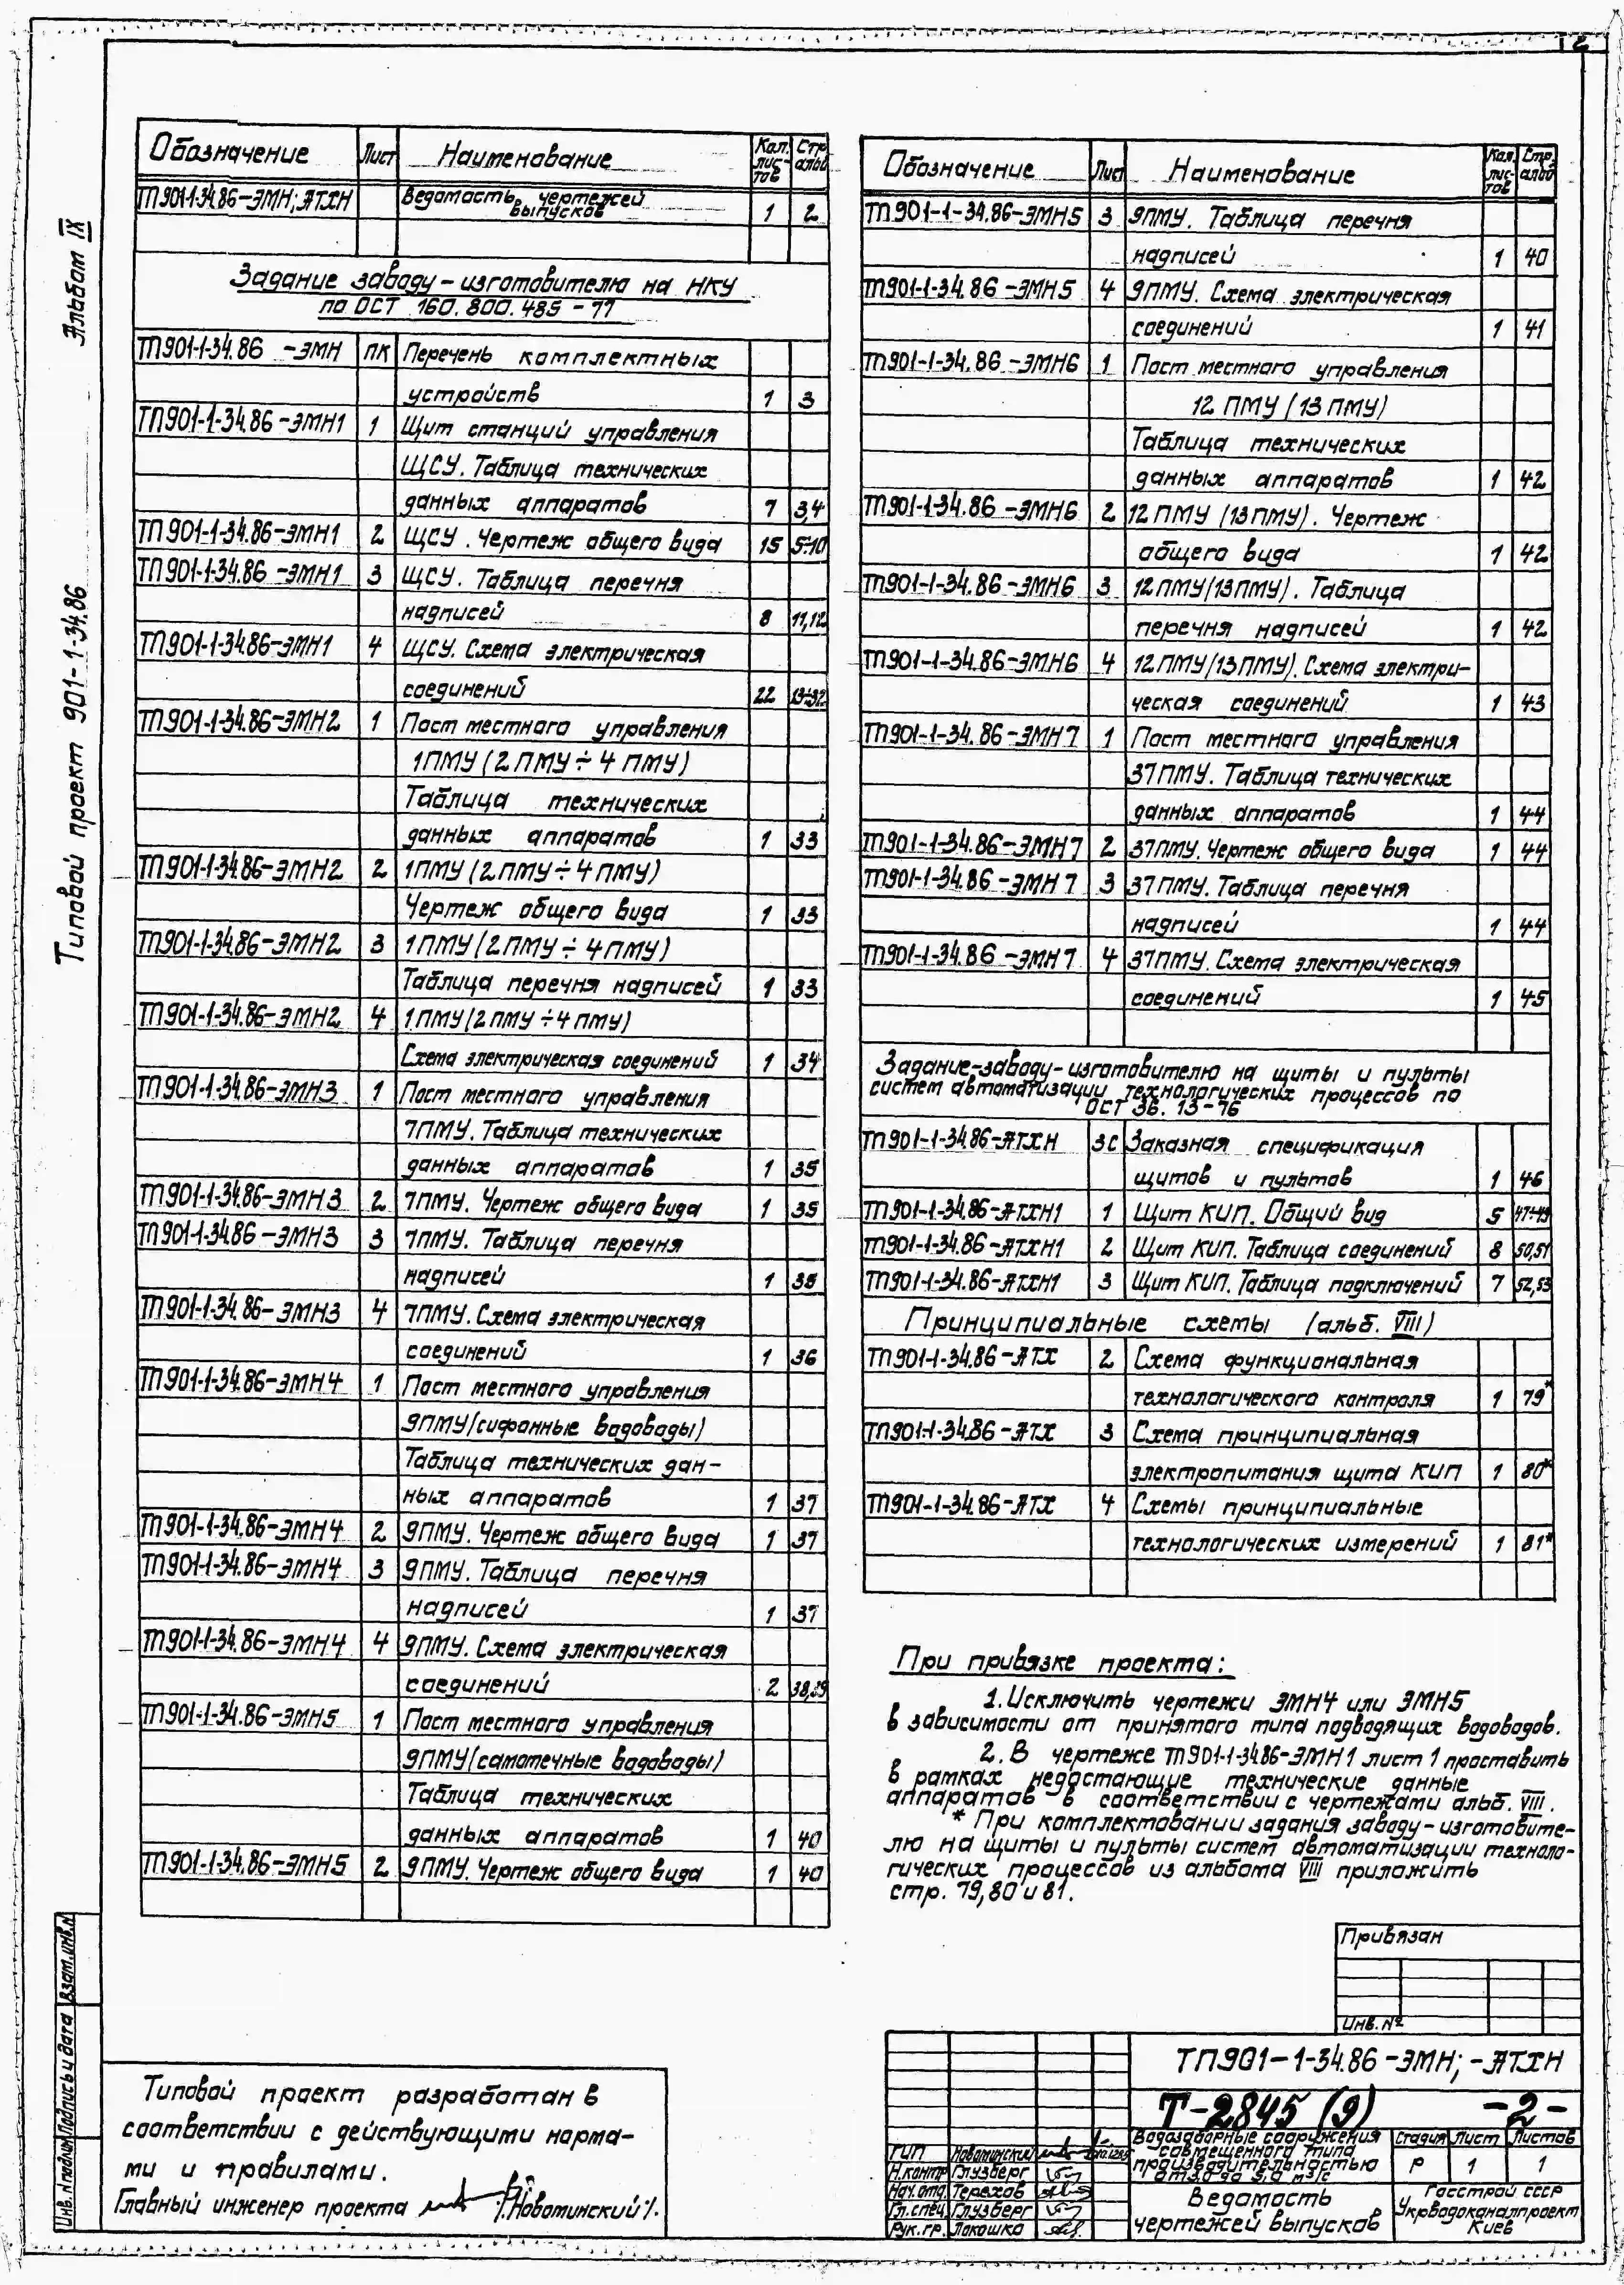 2
Альбом IX
Типовой проект 901-1-34.86
Обозначение Лист Наименование Кол. лис-тов Стр. альбо
ТП901-1-34.86-ЭМН; АТХН Ведомость чертежей
выпусков 1 2
Задание заводу-изготовителю на НКУ
по ОСТ 160.800.485-77
ТП901-1-34.86 -ЭМН ПК Перечень комплектных
устройств 1 3
ТП901-1-34.86-ЭМН1 1 Щит станций управления
ЩСУ. Таблица технических
данных аппаратов 7 3,4
ТП901-1-34.86-ЭМН1 2 ЩСУ. Чертеж общего вида 15 5÷10
ТП901-1-34.86-ЭМН1 3 ЩСУ. Таблица перечня
надписей 8 11,12
ТП901-1-34.86-ЭМН1 4 ЩСУ. Схема электрическая
соединений 22 13÷32
ТП901-1-34.86-ЭМН2 1 Пост местного управления
1ПМУ (2ПМУ÷4ПМУ)
Таблица технических
данных аппаратов 1 33
ТП901-1-34.86-ЭМН2 2 1ПМУ (2ПМУ÷4ПМУ)
Чертеж общего вида 1 33
ТП901-1-34.86-ЭМН2 3 1ПМУ (2ПМУ÷4ПМУ)
Таблица перечня надписей 1 33
ТП901-1-34.86-ЭМН2 4 1ПМУ (2ПМУ÷4ПМУ)
Схема электрическая соединений 1 34
ТП901-1-34.86-ЭМН3 1 Пост местного управления
7ПМУ. Таблица технических
данных аппаратов 1 35
ТП901-1-34.86-ЭМН3 2 7ПМУ. Чертеж общего вида 1 35
ТП901-1-34.86-ЭМН3 3 7ПМУ. Таблица перечня
надписей 1 35
ТП901-1-34.86-ЭМН3 4 7ПМУ. Схема электрическая
соединений 1 36
ТП901-1-34.86-ЭМН4 1 Пост местного управления
9ПМУ (сифонные водоводы)
Таблица технических дан-
ных аппаратов 1 37
ТП901-1-34.86-ЭМН4 2 9ПМУ. Чертеж общего вида 1 37
ТП901-1-34.86-ЭМН4 3 9ПМУ. Таблица перечня
надписей 1 37
ТП901-1-34.86-ЭМН4 4 9ПМУ. Схема электрическая
соединений 2 38,39
ТП901-1-34.86-ЭМН5 1 Пост местного управления
9ПМУ (самотечные водоводы)
Таблица технических
данных аппаратов 1 40
ТП901-1-34.86-ЭМН5 2 9ПМУ. Чертеж общего вида 1 40
Обозначение Лист Наименование Кол. лис-тов Стр. альбо
ТП901-1-34.86-ЭМН5 3 9ПМУ. Таблица перечня
надписей 1 40
ТП901-1-34.86-ЭМН5 4 9ПМУ. Схема электрическая
соединений 1 41
ТП901-1-34.86-ЭМН6 1 Пост местного управления
12ПМУ (13ПМУ)
Таблица технических
данных аппаратов 1 42
ТП901-1-34.86-ЭМН6 2 12ПМУ (13ПМУ). Чертеж
общего вида 1 42
ТП901-1-34.86-ЭМН6 3 12ПМУ (13ПМУ). Таблица
перечня надписей 1 42
ТП901-1-34.86-ЭМН6 4 12ПМУ (13ПМУ). Схема электри-
ческая соединений 1 43
ТП901-1-34.86-ЭМН7 1 Пост местного управления
37ПМУ. Таблица технических
данных аппаратов 1 44
ТП901-1-34.86-ЭМН7 2 37ПМУ. Чертеж общего вида 1 44
ТП901-1-34.86-ЭМН7 3 37ПМУ. Таблица перечня
надписей 1 44
ТП901-1-34.86-ЭМН7 4 37ПМУ. Схема электрическая
соединений 1 45
Задание-заводу-изготовителю на щиты и пульты
систем автоматизации технологических процессов по
ОСТ 36.13-76
ТП901-1-34.86-АТХН ЗС Заказная спецификация
щитов и пультов 1 46
ТП901-1-34.86-АТХН1 1 Щит КИП. Общий вид 5 47÷49
ТП901-1-34.86-АТХН1 2 Щит КИП. Таблица соединений 8 50,51
ТП901-1-34.86-АТХН1 3 Щит КИП. Таблица подключений 7 52,53
Принципиальные схемы (альб. VIII)
ТП901-1-34.86-АТХ 2 Схема функциональная
технологического контроля 1 79*
ТП901-1-34.86-АТХ 3 Схема принципиальная
электропитания щита КИП 1 80*
ТП901-1-34.86-АТХ 4 Схемы принципиальные
технологических измерений 1 81*
При привязке проекта:
1. Исключить чертежи ЭМН4 или ЭМН5
в зависимости от принятого типа подводящих водоводов.
2. В чертеже ТП901-1-34.86-ЭМН1 лист 1 проставить
в рамках недостающие технические данные
аппаратов в соответствии с чертежами альб. VIII.
* При комплектовании задания заводу-изготовите-
лю на щиты и пульты систем автоматизации техноло-
гических процессов из альбома VIII приложить
стр. 79,80 и 81.
Привязан
Инв. №
Типовой проект разработан в
соответствии с действующими норма-
ми и правилами.
Главный инженер проекта /Новотинский/.
Инв. № подлин. Подпись и дата Взам. инв. №
ТП901-1-34.86-ЭМН; -АТХН
Т-2845 (9) -2-
ГИП Новотинский
Н.контр Глузберг
Нач.отд. Терехов
Гл.спец. Глузберг
Рук.гр. Локошко
Водозаборные сооружения
совмещенного типа
производительностью
от 3,0 до 5,0 м³/с
Стадия Лист Листов
Р 1 1
Ведомость
чертежей выпусков
Госстрой СССР
Укрводоканалпроект
Киев